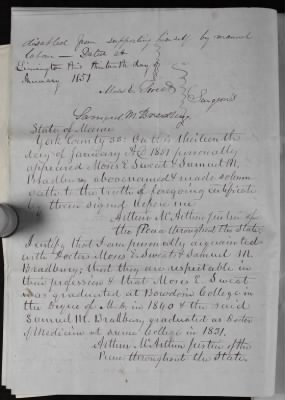 disabled from supporting himself by manual
labor — Dated at
Limington this thirteenth day of
January 1851
Moses E Sweat
Surgeons
Samuel M. Bradbury
State of Maine
York County SS: On this thirteen th
day of January AD 1851 personally
appeared Moses E. Sweat & Samuel M.
Bradbury above named & made solemn
oath to the truth of foregoing certificate
them signed before me
Arthur McArthur justice of
the Peace throughout the State
I certify that I am personally acquainted
with Doctors Moses E. Sweat & Samuel M.
Bradbury; that they are respectable in
their profession & that Moses E. Sweat
was graduated at Bowdoin College in
the Degree of M.D. in 1840 & the said
Samuel M. Bradbury graduated as Doctor
of Medicine at same College in 1821.
Arthur McArthur justice of the
Peace throughout the State